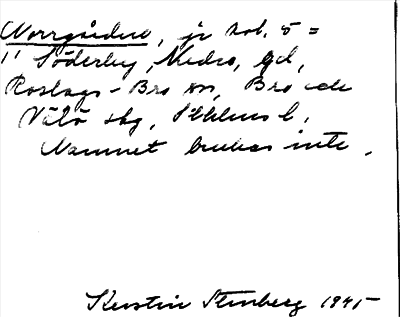 Norrgården, jr kol. 5 =
11 Söderby, Nedre, gd,
Roslags-Bro sn, Bro och
Vätö skg, Sthlms l.
Namnet brukas inte.
Kerstin Stenberg 1945